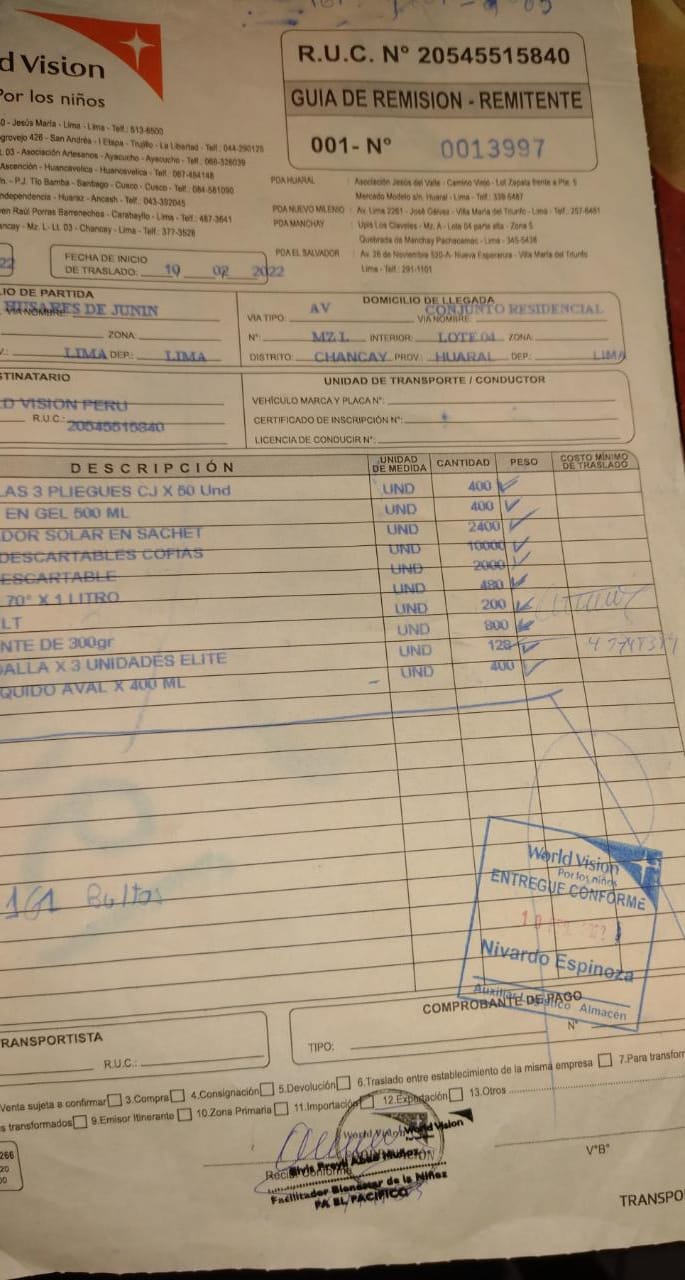 d Vision
Por los niños
R.U.C. N° 20545515840
GUIA DE REMISION - REMITENTE
001- N° 0013997
0 - Jesús María - Lima - Lima - Telf.: 513-6500
grovejo 426 - San Andrés - I Etapa - Trujillo - La Libertad - Telf.: 044-290125
03 - Asociación Artesanos - Ayacucho - Ayacucho - Telf.: 066-326039
Ascención - Huancavelica - Huancavelica - Telf.: 067-454148
- P.J. Tío Bamba - Santiago - Cusco - Cusco - Telf.: 084-581090
ndependencia - Huaraz - Ancash - Telf.: 043-392045
en Raúl Porras Barrenechea - Carabayllo - Lima - Telf.: 487-3641
ancay - Mz. L- Lt. 03 - Chancay - Lima - Telf.: 377-3526
PDA HUARAL : Asociación Jesús del Valle - Camino Viejo - Lot Zapata frente a Pte. 5
Mercado Modelo s/n. Huaral - Lima - Telf.: 339-6487
PDA NUEVO MILENIO : Av. Lima 2261 - José Gálvez - Villa María del Triunfo - Lima - Telf.: 257-6451
PDA MANCHAY : Upis Los Claveles - Mz. A - Lote 04 parte alta - Zona 5
Quebrada de Manchay Pachacamac - Lima - 345-5436
PDA EL SALVADOR : Av. 26 de Noviembre 520-A- Nueva Esperanza - Villa María del Triunfo
Lima - Telf.: 291-1101
22
FECHA DE INICIO
DE TRASLADO: 10 02 2022
LIO DE PARTIDA
HUSARES DE JUNIN
VIA NOMBRE:
ZONA:
LIMA DEP.: LIMA
DOMICILIO DE LLEGADA
VIA TIPO: AV VIA NOMBRE: CONJUNTO RESIDENCIAL
N°: MZ L INTERIOR: LOTE 04 ZONA:
DISTRITO: CHANCAY PROV.: HUARAL DEP.: LIMA
STINATARIO
D VISION PERU
R.U.C.: 20545515840
UNIDAD DE TRANSPORTE / CONDUCTOR
VEHÍCULO MARCA Y PLACA N°:
CERTIFICADO DE INSCRIPCIÓN N°:
LICENCIA DE CONDUCIR N°:
DESCRIPCIÓN UNIDAD DE MEDIDA CANTIDAD PESO COSTO MÍNIMO DE TRASLADO
LAS 3 PLIEGUES CJ X 50 Und UND 400
EN GEL 500 ML UND 400
DOR SOLAR EN SACHET UND 2400
DESCARTABLES COFIAS UND 10000
ESCARTABLE UND 2000
70° X 1 LITRO UND 480
LT UND 200
NTE DE 300gr UND 800
OALLA X 3 UNIDADES ELITE UND 128
QUIDO AVAL X 400 ML - UND 400
161 Bultos
World Vision
Por los niños
ENTREGUE CONFORME
Nivardo Espinoza
Auxiliar Logístico Almacén
COMPROBANTE DE PAGO
TIPO:
N°
RANSPORTISTA
R.U.C.:
Venta sujeta a confirmar 3.Compra 4.Consignación 5.Devolución 6.Traslado entre establecimiento de la misma empresa 7.Para transfor
s transformados 9.Emisor Itinerante 10.Zona Primaria 11.Importación 12.Exportación 13.Otros
266
20
00
World Vision
Facilitador Bienestar de la Niñez
PA EL PACIFICO
V°B°
TRANSPO